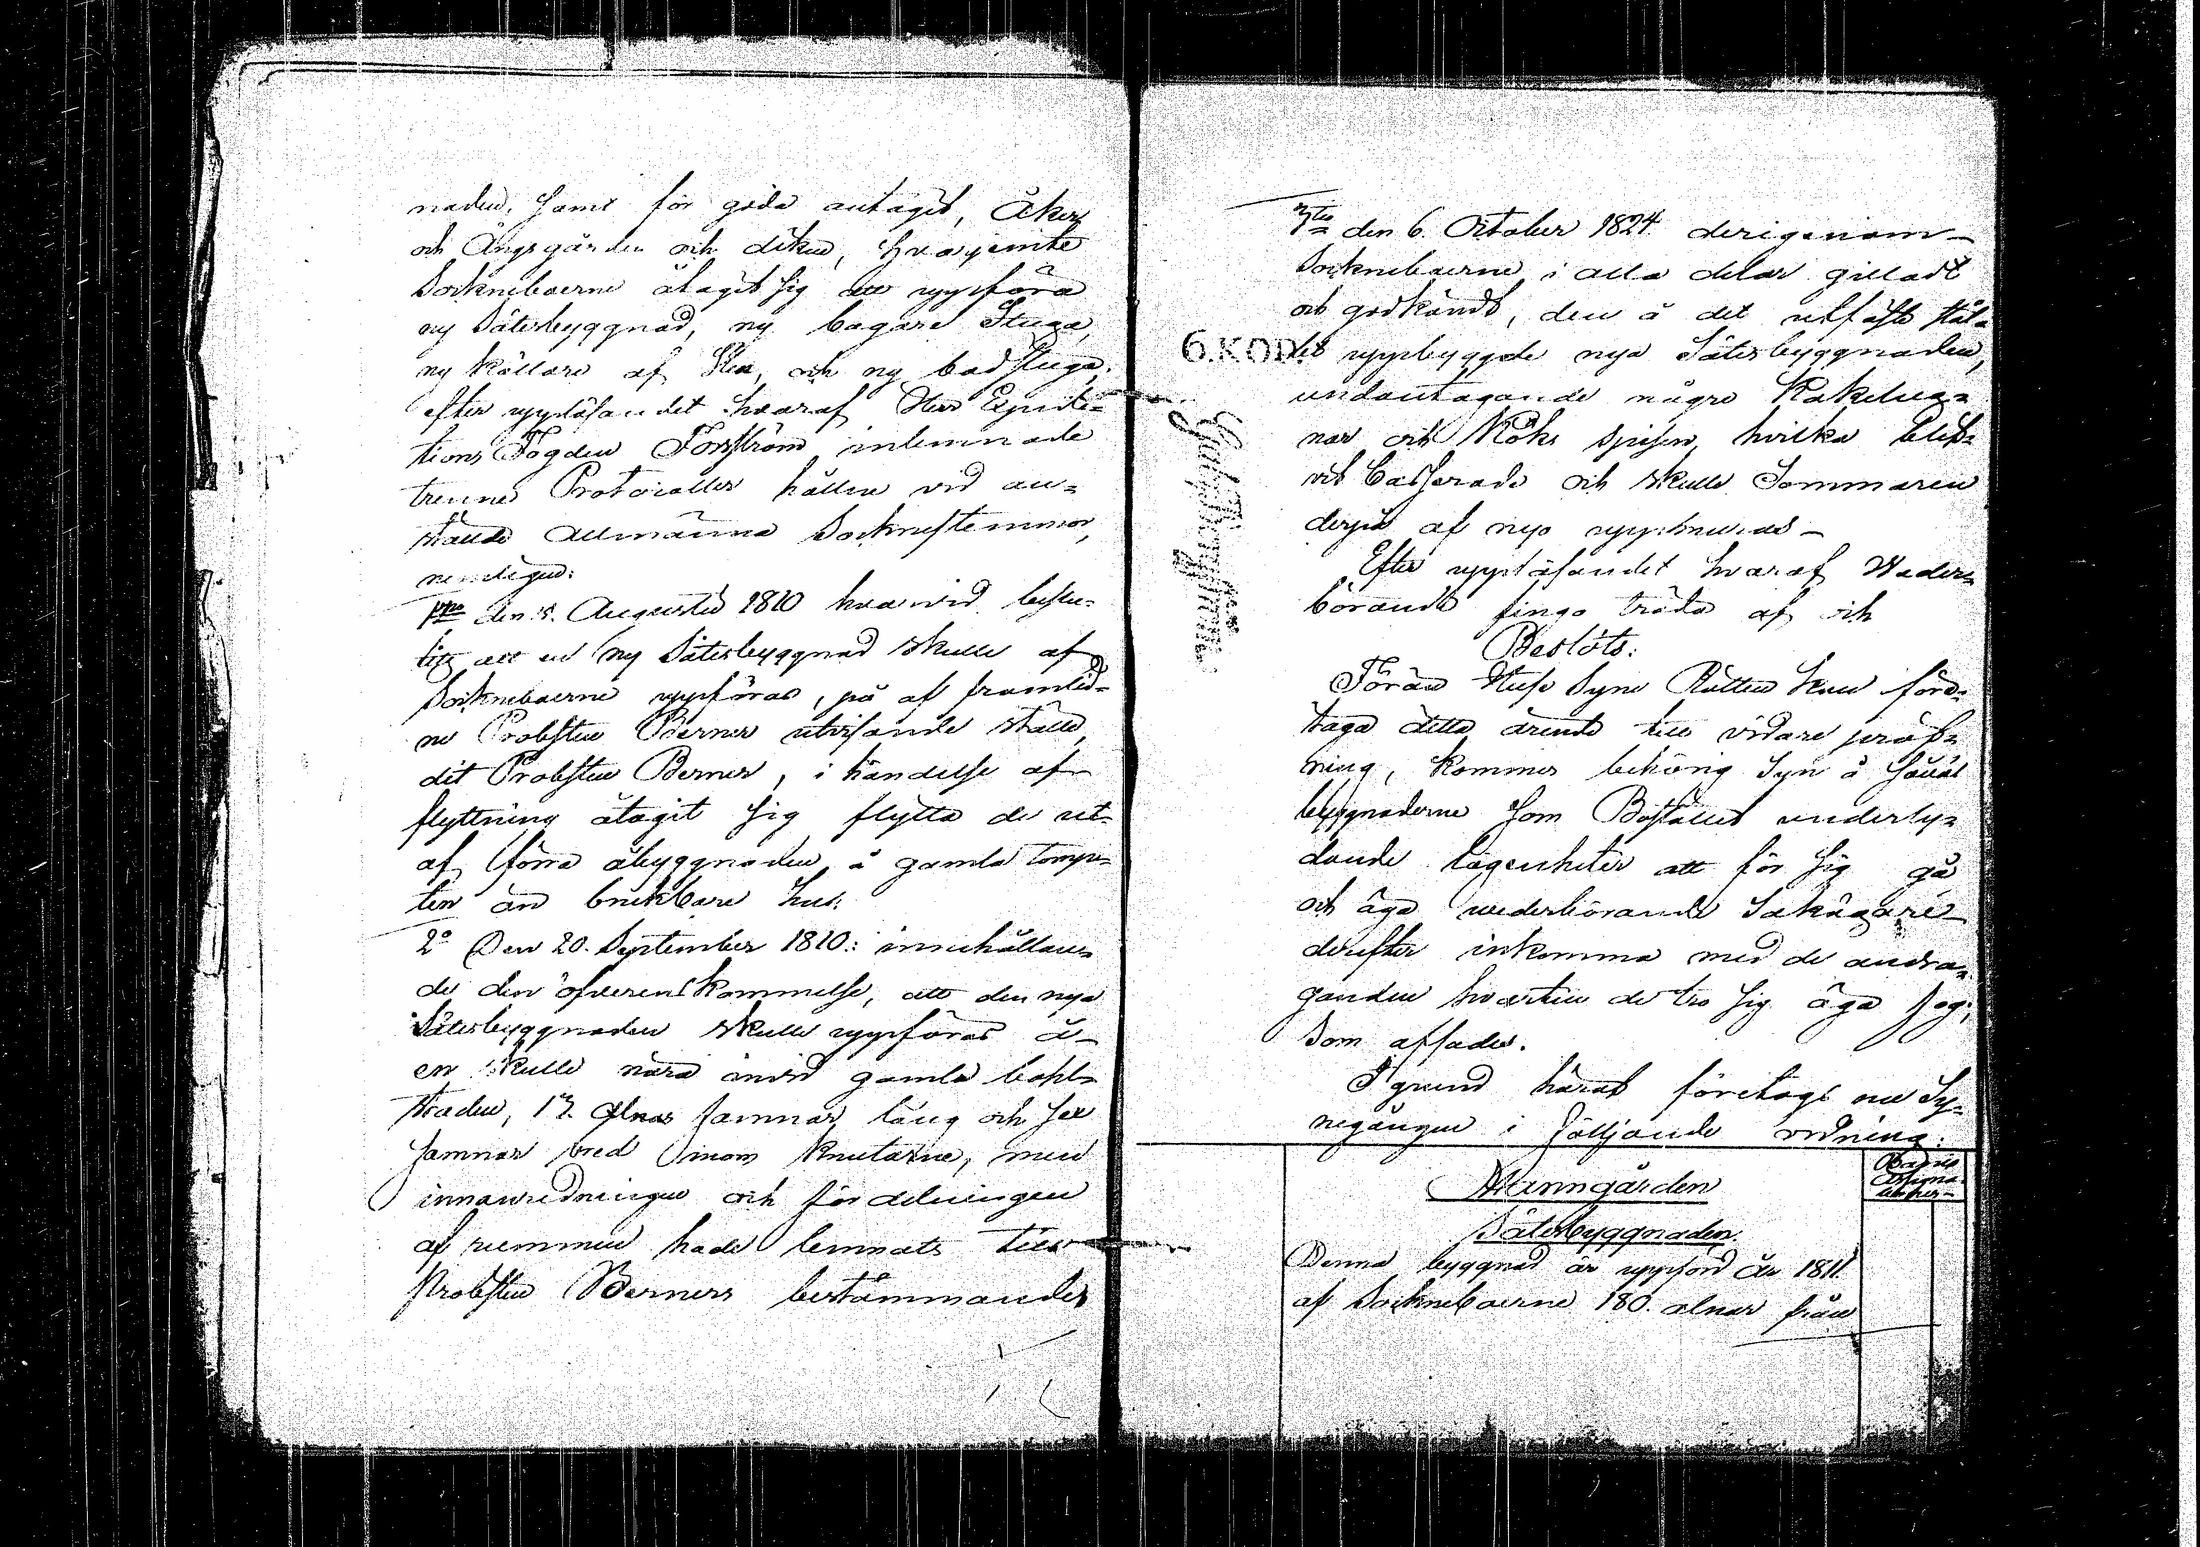 naden, samt för goda antagit, Åker
och Ängsgärden och diken, hvarjemte
Sockneboerne åtagit sig att uppföra
ny Sätesbyggnad, ny bagare Stuga,
ny källare af Sten, och ny badstuga,
efter uppläsandet hvaraf Herr Expedi=
tions Fogden Forsström inlemnade
trenne Protocoller hållne vid an=
stälde Allmänna Socknestemmor,
nemligen:
1mo den 5. Augusti 1810 hvarvid beslu=
tits att en ny Sätesbyggnad skulle af
Sockneboerne uppföras, på af framlid=
ne Probsten Berner utvisande ställe,
dit Probsten Berner, i händelse af
flyttning åtagit sig flytta de ut=
af förra åbyggnaden å gamla tomp=
ten än brukbare hus.
2o Den 20. September 1810: innehållan=
de den öfverenskommelse, att den nya
Sätesbyggnaden skulle uppföras å
en kulle nära invid gamla bohl=
staden, 13 alnar famnar lång och sex
famnar bred inom knutarne, men
innanredningen och fördelningen
af rummen hade lemnats till
Probsten Berners bestämmande
3tio den 6. October 1824 derigenom
Sockneboerne i alla delar gilladt
och godkändt, den å det utfäste stäl=
let uppbyggde nya Sätesbyggnaden,
6.KOD.
undantagande några Kakelug=
nar och Köks spisen, hvilka blif=
vit casserade och skulle Sommaren
derpå af nyo uppmuras
Efter uppläsandet hvaraf Weder=
börande fingo träda af och
Beslöts:
Förän Huse Syne Rätten kan före=
taga detta ärende till vidare pröf=
ning, kommer behörig Syn å såväl
byggnaderne som Boställets underly=
dande lägenheter att för sig gå
och äga wederbörande Sakägare
derefter inkomma med de andra=
ganden hvartill de tro sig äga fog;
Som afsades.
I grund häraf företogs nu Sy=
negången i följande ordning:
Manngården
Sätesbyggnaden.
Denna byggnad är uppförd År 1811.
af Sockneboerne 180. alnar från